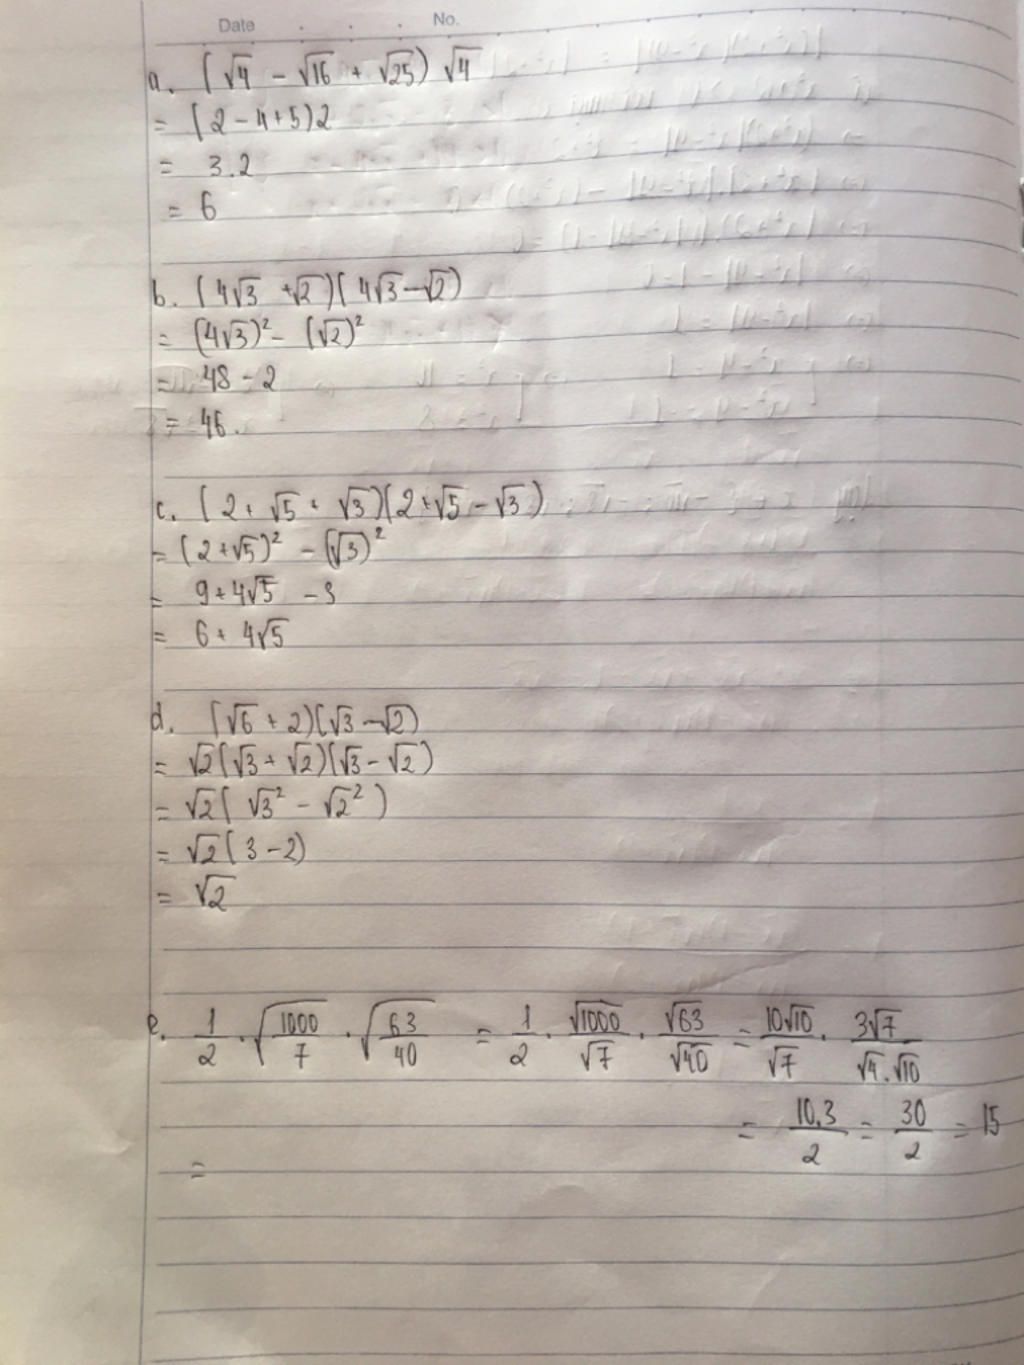 Date . . . No.
a. (√4 - √16 + √25) √4
= (2 - 4 + 5)2
= 3.2
= 6
b. (4√3 + √2)(4√3 - √2)
= (4√3)² - (√2)²
= 48 - 2
= 46.
c. (2 + √5 + √3)(2 + √5 - √3)
= (2 + √5)² - (√3)²
= 9 + 4√5 - 3
= 6 + 4√5
d. (√6 + 2)(√3 - √2)
= √2(√3 + √2)(√3 - √2)
= √2(√3² - √2²)
= √2(3 - 2)
= √2
e. 1/2 . √(1000/7) . √(63/40) = 1/2 . √1000/√7 . √63/√40 = 10√10/√7 . 3√7/(√4.√10)
= 10.3/2 = 30/2 = 15
=